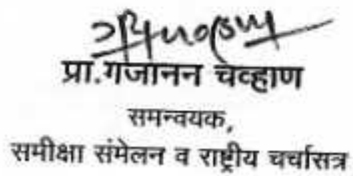 प्रा.गजानन चव्हाण
समन्वयक,
समीक्षा संमेलन व राष्ट्रीय चर्चासत्र